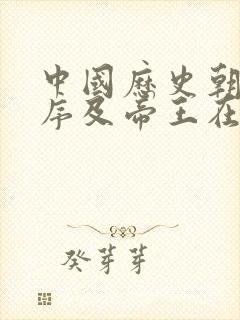 中國歷史朝
序及帝王在
癸芽芽